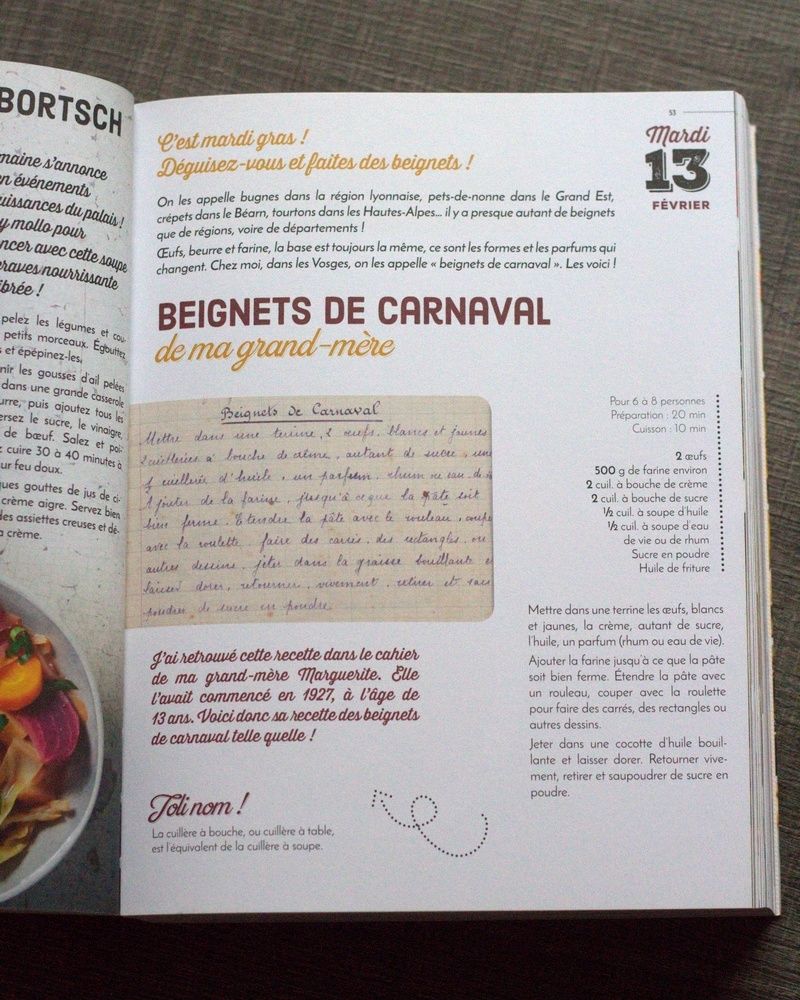 BORTSCH
maine s'annonce
en événements
uissances du palais !
y mollo pour
ncer avec cette soupe
eraves nourrissante
ibrée !
pelez les légumes et cou-
petits morceaux. Égouttez
s et épépinez-les.
nir les gousses d'ail pelées
dans une grande casserole
urre, puis ajoutez tous les
ersez le sucre, le vinaigre,
de bœuf. Salez et poi-
z cuire 30 à 40 minutes à
ur feu doux.
ques gouttes de jus de ci-
crème aigre. Servez bien
des assiettes creuses et dé-
a crème.
53
Mardi
13
FÉVRIER
C'est mardi gras !
Déguisez-vous et faites des beignets !
On les appelle bugnes dans la région lyonnaise, pets-de-nonne dans le Grand Est,
crépets dans le Béarn, tourtons dans les Hautes-Alpes... il y a presque autant de beignets
que de régions, voire de départements !
Œufs, beurre et farine, la base est toujours la même, ce sont les formes et les parfums qui
changent. Chez moi, dans les Vosges, on les appelle « beignets de carnaval ». Les voici !
BEIGNETS DE CARNAVAL
de ma grand-mère
Beignets de Carnaval
Mettre dans une terrine, 2 œufs, blancs et jaunes
2 cuillerées à bouche de crème, autant de sucre, une
½ cuillerée d'huile, un parfum, rhum ou eau de
Ajouter de la farine, jusqu'à ce que la pâte soit
bien ferme. Etendre la pâte avec le rouleau, coupe
avec la roulette, faire des carrés, des rectangles, ou
autres dessins, jeter dans la graisse bouillante e
laisser dorer, retourner, vivement, retirer et sau
poudrer de sucre en poudre
Pour 6 à 8 personnes
Préparation : 20 min
Cuisson : 10 min
2 œufs
500 g de farine environ
2 cuil. à bouche de crème
2 cuil. à bouche de sucre
½ cuil. à soupe d'huile
½ cuil. à soupe d'eau
de vie ou de rhum
Sucre en poudre
Huile de friture
Mettre dans une terrine les œufs, blancs
et jaunes, la crème, autant de sucre,
l'huile, un parfum (rhum ou eau de vie).
Ajouter la farine jusqu'à ce que la pâte
soit bien ferme. Étendre la pâte avec
un rouleau, couper avec la roulette
pour faire des carrés, des rectangles ou
autres dessins.
Jeter dans une cocotte d'huile bouil-
lante et laisser dorer. Retourner vive-
ment, retirer et saupoudrer de sucre en
poudre.
J'ai retrouvé cette recette dans le cahier
de ma grand-mère Marguerite. Elle
l'avait commencé en 1927, à l'âge de
13 ans. Voici donc sa recette des beignets
de carnaval telle quelle !
Joli nom !
La cuillère à bouche, ou cuillère à table,
est l'équivalent de la cuillère à soupe.